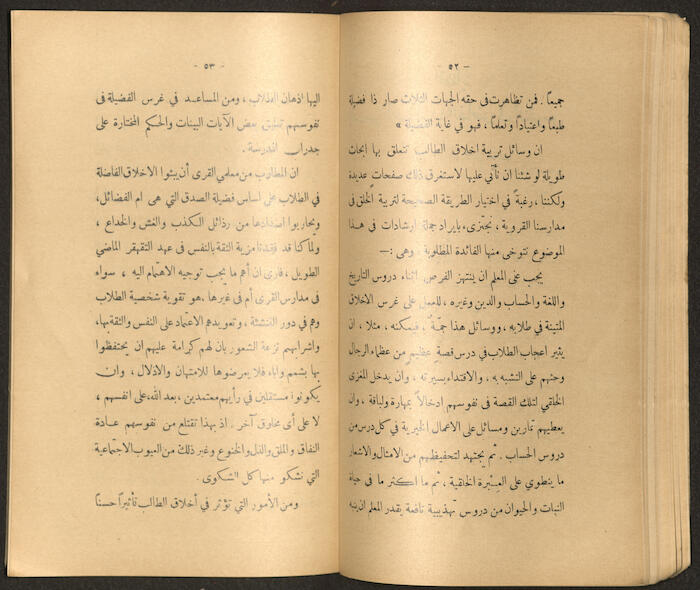 - ٥٢ -
جميعاً . فمن تظاهرت في حقه الجهات الثلاث صار ذا فضيلة
طبعاً واعتياداً وتعلماً ، فهو في غاية الفضيلة »
ان وسائل تربية اخلاق الطالب تتعلق بها ابحاث
طويلة لو شئنا ان نأتي عليها لاستغرق ذلك صفحات عديدة
ولكننا ، رغبةً في اختيار الطريقة الصحيحة لتربية الخلق في
مدارسنا القروية ، نجتزىء بايراد جملة ارشادات في هذا
الموضوع نتوخى منها الفائدة المطلوبة ، وهي :—
يجب على المعلم ان ينتهز الفرص اثناء دروس التاريخ
واللغة والحساب والدين وغيره ، للعمل على غرس الاخلاق
المتينة في طلابه ، ووسائل هذا جمّة ، فيمكنه ، مثلا ، ان
يثير اعجاب الطلاب في درس قصة عظيم من عظماء الرجال
وحثهم على التشبه به ، والاقتداء بسيرته ، وان يدخل المغزى
الخلقي لتلك القصة في نفوسهم ادخالاً بمهارة ولباقة ، وان
يعطيهم تمارين ومسائل على الاعمال الخيرية في كل درس من
دروس الحساب . ثم يجتهد لتحفيظهم من الامثال والاشعار
ما ينطوي على العِبْرة الخلقية ، ثم ما اكثر ما في حياة
النبات والحيوان من دروس تهذيبية نافعة يقدر المعلم ان ينبه
- ٥٣ -
اليها اذهان الطلاب ، ومن المساعد في غرس الفضيلة في
نفوسهم تعليق بعض الآيات البينات والحكم المختارة على
جدران المدرسة .
ان المطلوب من معلمي القرى أن يبثوا الاخلاق الفاضلة
في الطلاب على اساس فضيلة الصدق التي هي ام الفضائل ،
ويحاربوا اضدادها من رذائل الكذب والغش والخداع ،
ولما كنا قد فقدنا مزية الثقة بالنفس في عهد التقهقر الماضي
الطويل ، فارى ان أهم ما يجب توجيه الاهتمام اليه ، سواء
في مدارس القرى أم في غيرها ، هو تقوية شخصية الطلاب
وهم في دور التنشئة ، وتعويدهم الاعتماد على النفس والثقة بها ،
واشرابهم نزعة الشعور بان لهم كرامة عليهم ان يحتفظوا
بها بشمم واباء فلا يعرضوها للامتهان والاذلال ، وان
يكونوا مستقلين في رأيهم معتمدين ، بعد الله ، على انفسهم ،
لا على أي مخلوق آخر . اذ بهذا تقتلع من نفوسهم عادة
النفاق والملق والذل والخنوع وغير ذلك من العيوب الاجتماعية
التي نشكو منها كل الشكوى .
ومن الأمور التي تؤثر في أخلاق الطالب تأثيراً حسناً